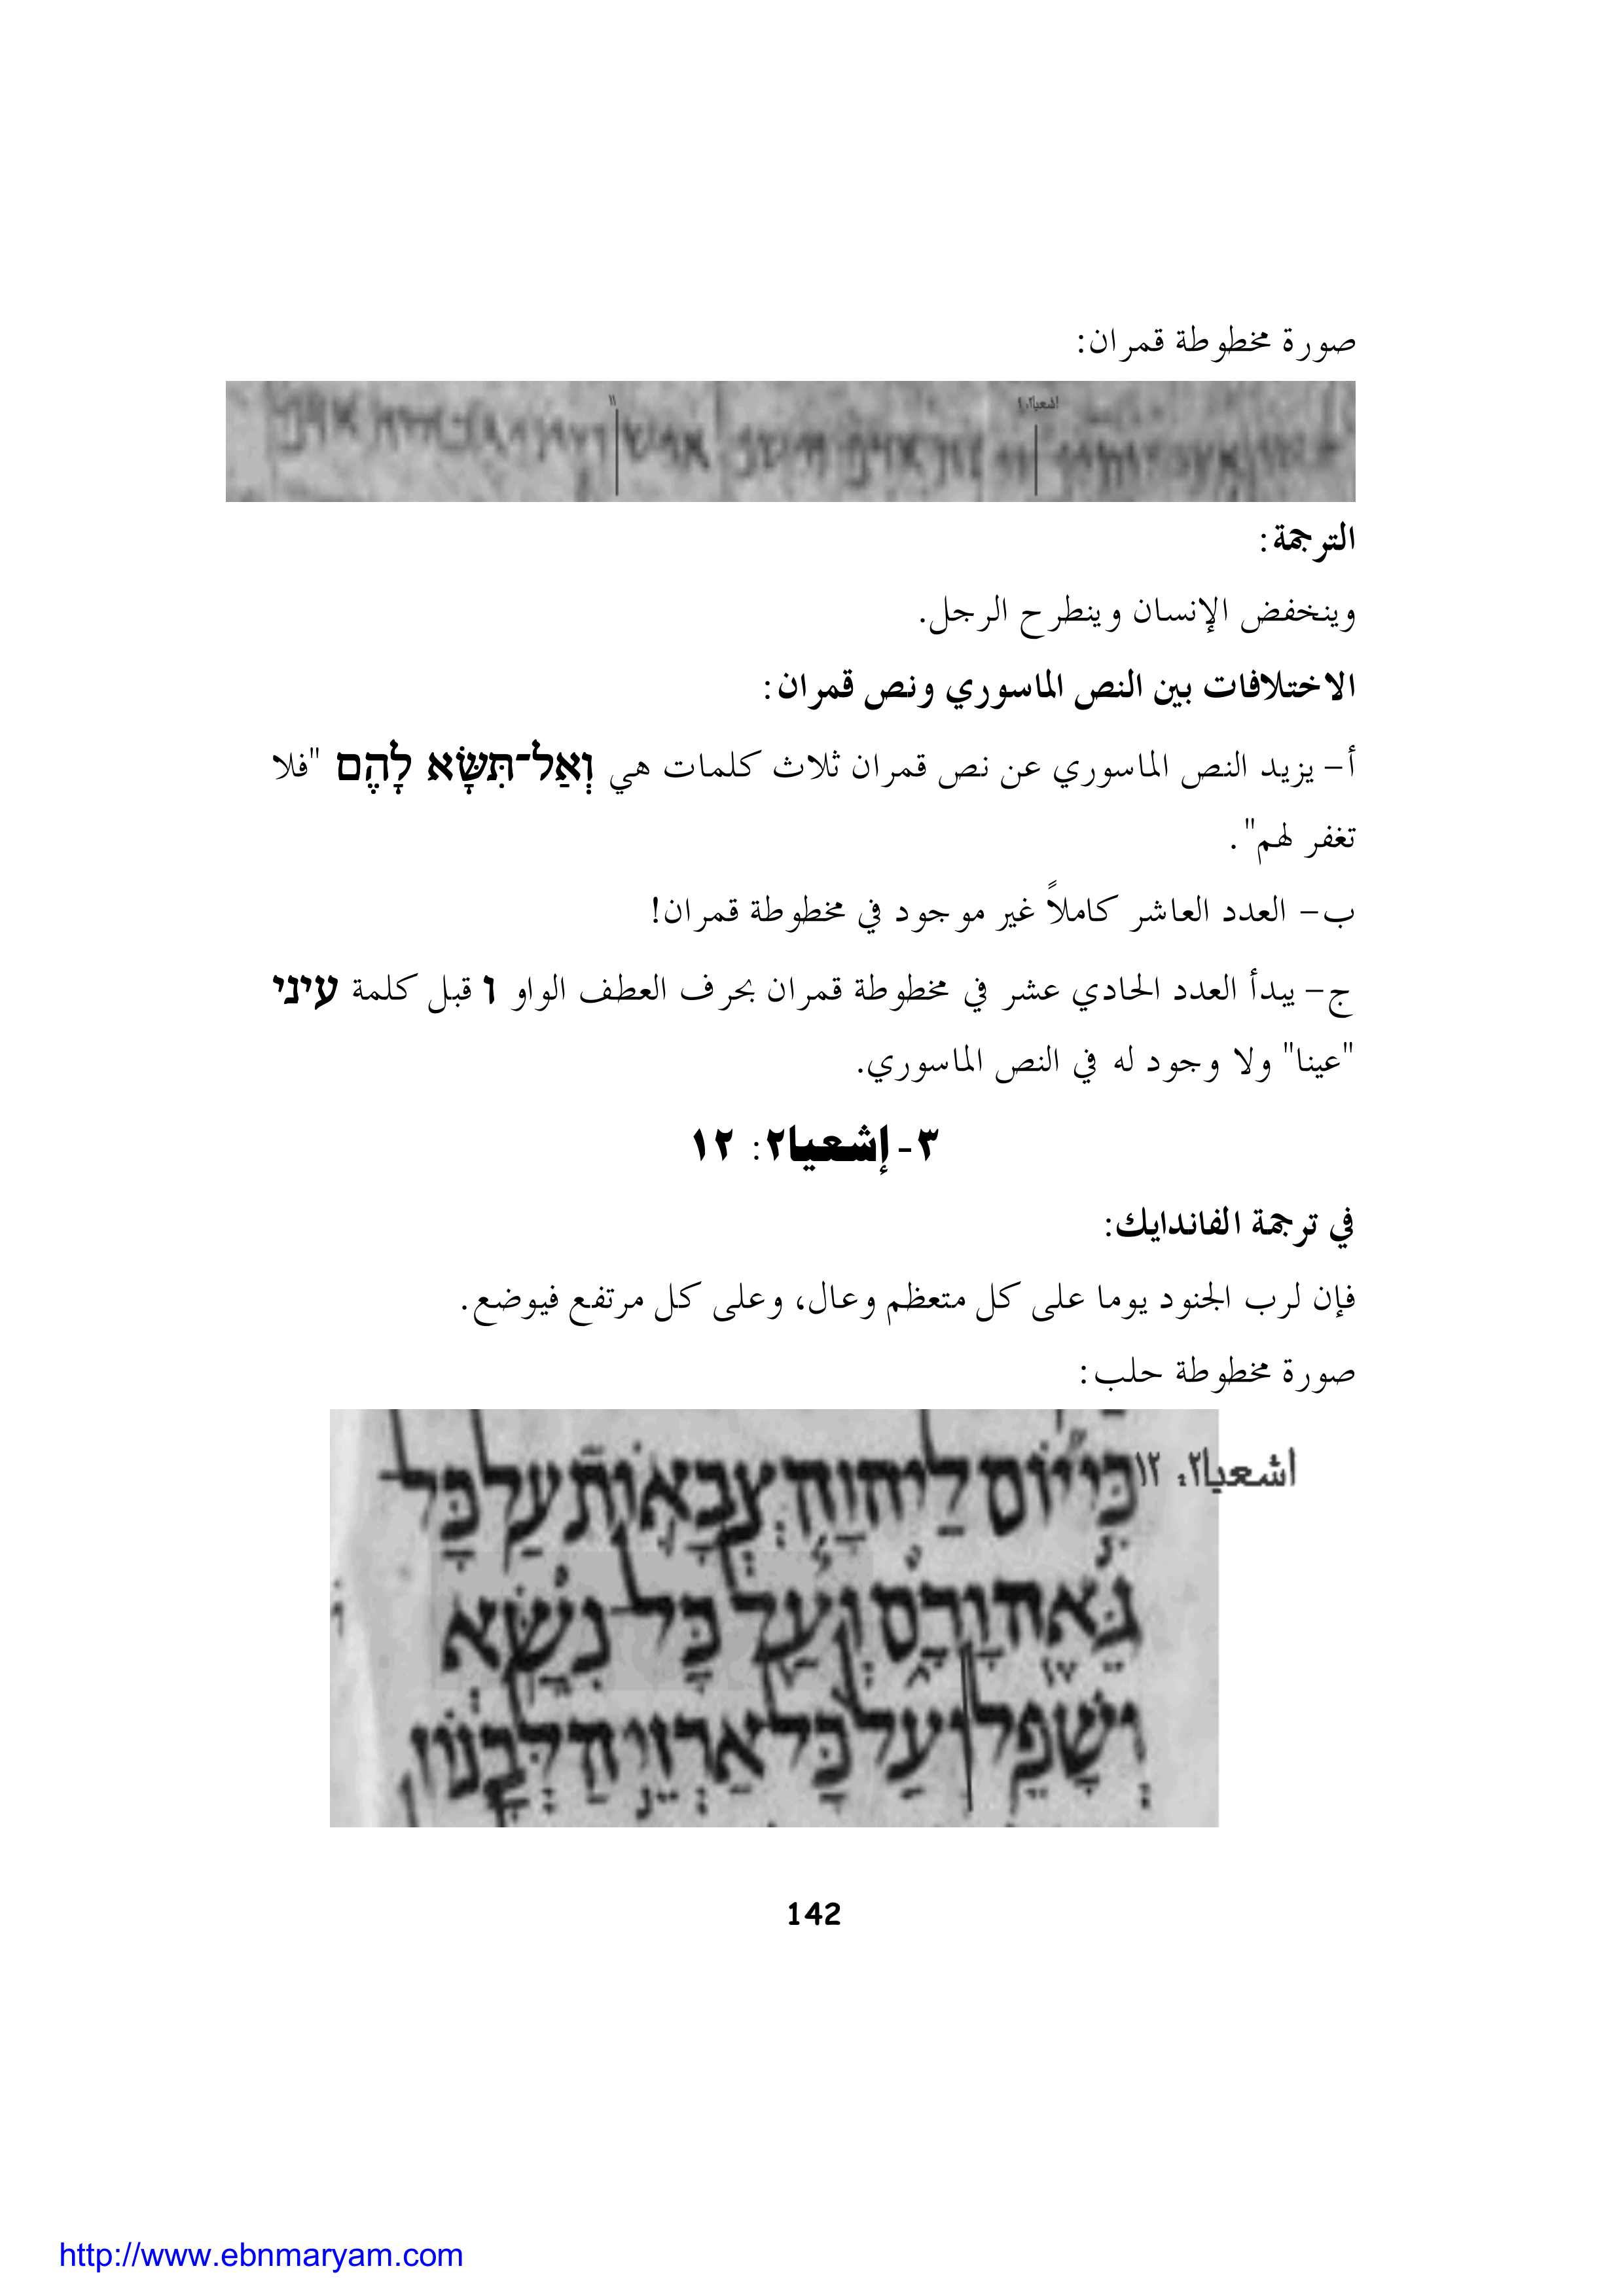 صورة مخطوطة قمران:
اشعيا٢: ٩
١١
الترجمة:
وينخفض الإنسان وينطرح الرجل.
الاختلافات بين النص الماسوري ونص قمران:
أ- يزيد النص الماسوري عن نص قمران ثلاث كلمات هي וְאַל־תִּשָּׂא לָהֶם "فلا
تغفر لهم".
ب- العدد العاشر كاملاً غير موجود في مخطوطة قمران!
ج- يبدأ العدد الحادي عشر في مخطوطة قمران بحرف العطف الواو ו قبل كلمة עיני
"عينا" ولا وجود له في النص الماسوري.
٣- إشعيا٢: ١٢
في ترجمة الفاندايك:
فإن لرب الجنود يوما على كل متعظم وعال، وعلى كل مرتفع فيوضع.
صورة مخطوطة حلب:
اشعيا٢: ١٢ כִּי יוֹם לַיהוָה צְבָאוֹת עַל כָּל
גֵּאֶה וָרָם וְעַל כָּל נִשָּׂא
וְשָׁפֵל וְעַל כָּל אַרְזֵי הַלְּבָנוֹן
142
http://www.ebnmaryam.com